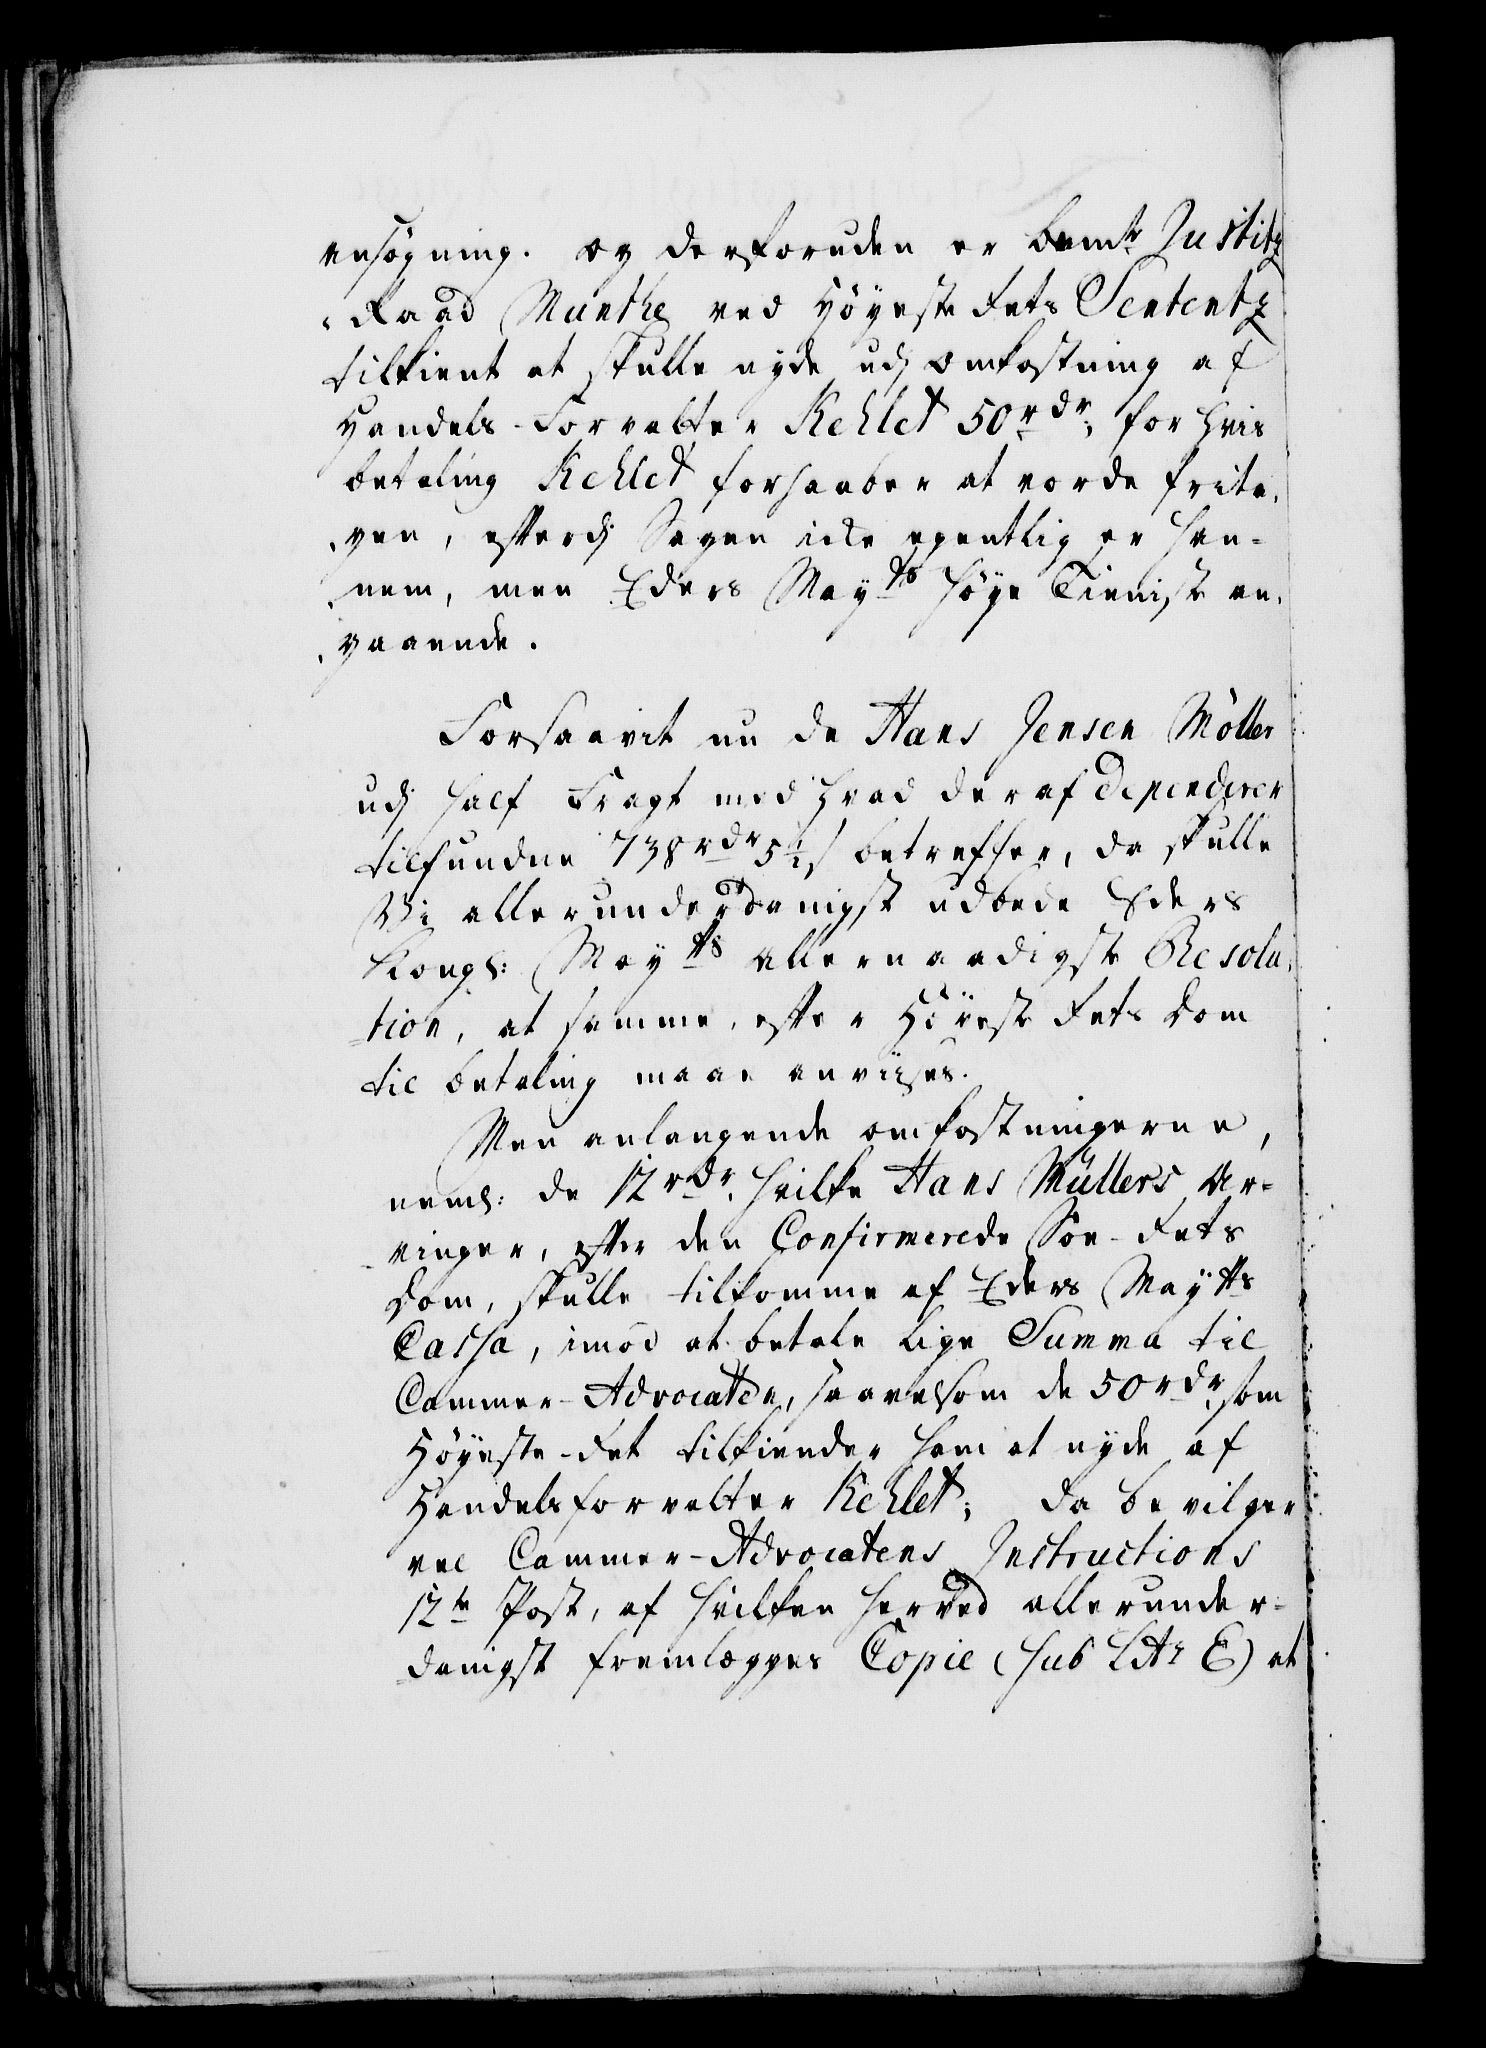 ansøgning. og derforuden er bemte Justitz
Raad Munthe ved Høyeste Rets Sententz
tilkient at skulle nyde udj omkostning af
Handels-Forvalter Kehlet 50 rdr; for hvis
betaling Kehlet forhaaber at vorde frita,
,gen, efterdj Sagen icke egentlig er han-
nem, men Eders Mayts høye Tieniste an,
,gaaende.
Forsaavit nu de Hans Jensen Møller
udj half Fragt med hvad deraf dependerer
tilfundne 738 rdr 5½ s betreffer, da skulle
Vi allerunderdanigst udbede Eders
Kongl: Mayts allernaadigste Resolu,
-tion, at samme, efter Høyeste Rets Dom
til betaling maae anviises.
Men anlangende omkostningerne,
neml: de 12 rdr, hvilke Hans Müllers Ar-
-vinger, efter den Confirmerede Søe-Rets
Dom, skulle tilkomme af Eders Mayts
Cassa, imod at betale lige Summa til
Cammer-Advocaten, saavelsom de 50 rdr, som
Høyeste-Ret tilkiender ham at nyde af
Handelsforvalter Kehlet; da bevilger
vel Cammer-Advocatens Instructions
12te Post, af hvilken herved allerunder-
-danigst fremlægges Copie (sub Litr E) at